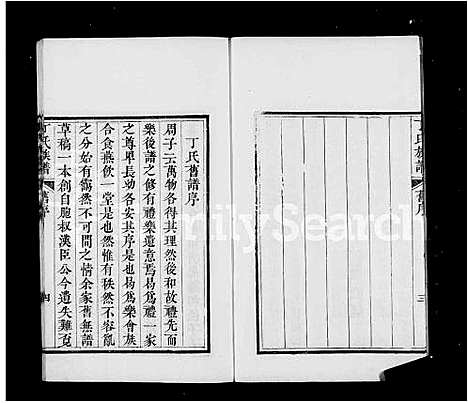 丁氏族譜
舊序
三
丁氏舊譜序
周子云萬物各得其理然後和故禮先而
樂後譜之修有禮樂遺意焉曷為禮一家
之尊卑長幼各安其序是也曷為樂會族
合食燕飲一堂是也然惟有秩然不容亂
之分始有靄然不可間之情余家舊無譜
草稿一本創自胞叔漢臣公今遺失難覓
丁氏族譜
舊序
四
FamilySearch